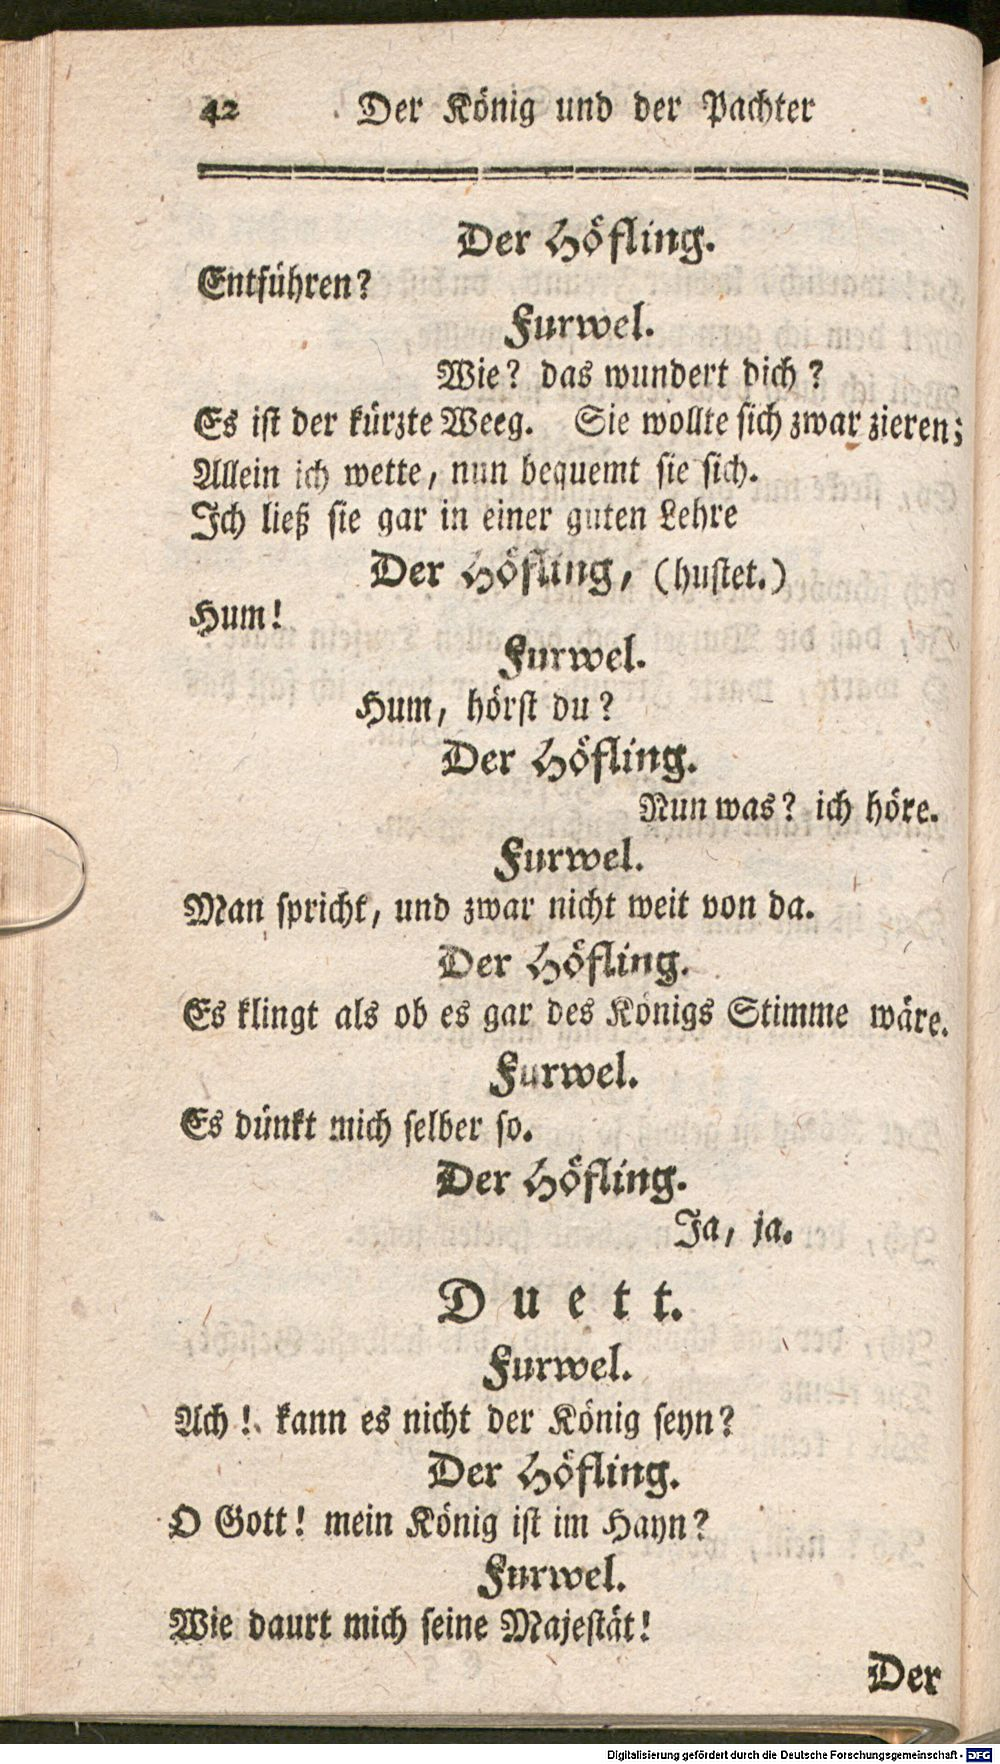 42 Der König und der Pachter
Der Höfling.
Entführen?
Furwel.
Wie? das wundert dich?
Es ist der kürzte Weeg. Sie wollte sich zwar zieren;
Allein ich wette, nun bequemt sie sich.
Ich ließ sie gar in einer guten Lehre
Der Höfling, (hustet.)
Hum!
Furwel.
Hum, hörst du?
Der Höfling.
Nun was? ich höre.
Furwel.
Man spricht, und zwar nicht weit von da.
Der Höfling.
Es klingt als ob es gar des Königs Stimme wäre.
Furwel.
Es dünkt mich selber so.
Der Höfling.
Ja, ja.
Duett.
Furwel.
Ach! kann es nicht der König seyn?
Der Höfling.
O Gott! mein König ist im Hayn?
Furwel.
Wie daurt mich seine Majestät!
Der
Digitalisierung gefördert durch die Deutsche Forschungsgemeinschaft - DFG